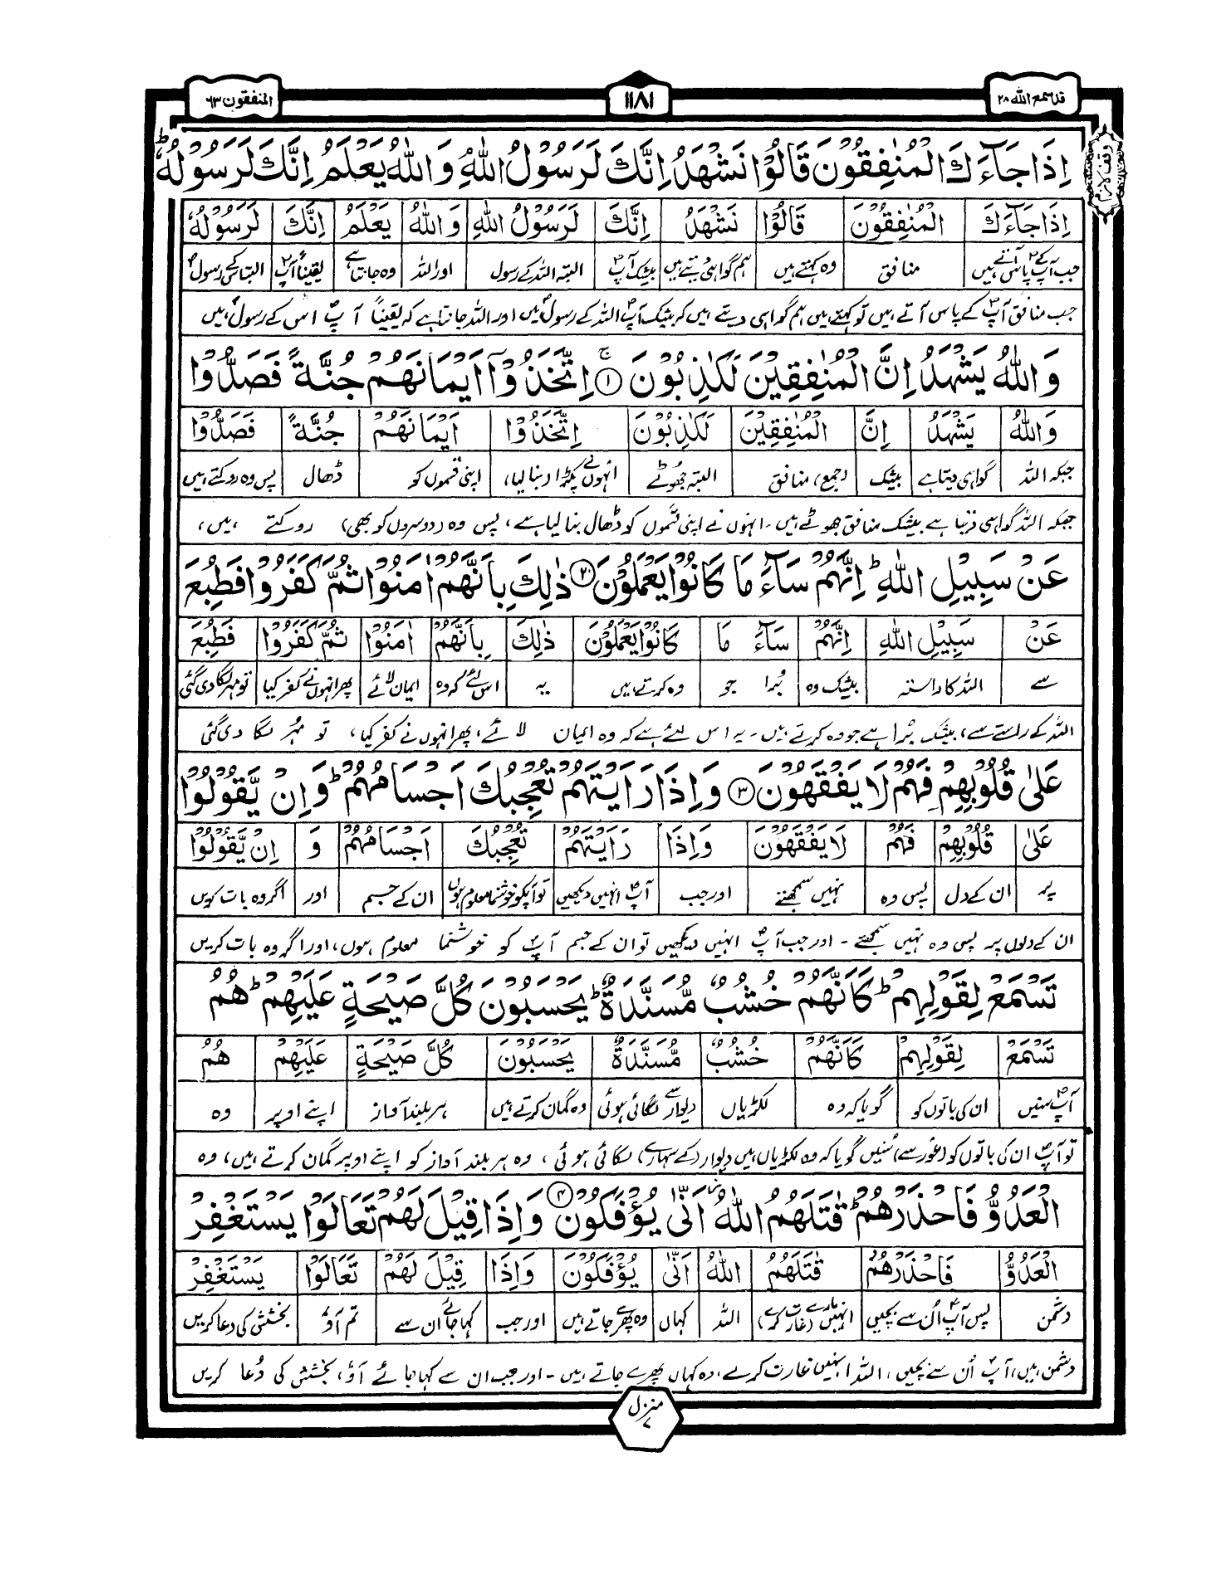 قد سمع الله ٢٨
١١٨١
المنفقون ٦٣
وقف لازم
إِذَا جَآءَكَ الْمُنٰفِقُوْنَ قَالُوْا نَشْهَدُ اِنَّكَ لَرَسُوْلُ اللّٰهِ وَاللّٰهُ يَعْلَمُ اِنَّكَ لَرَسُوْلُهٗ ؕ
اِذَا جَآءَكَ الْمُنٰفِقُوْنَ قَالُوْا نَشْهَدُ اِنَّكَ لَرَسُوْلُ اللّٰهِ وَ اللّٰهُ يَعْلَمُ اِنَّكَ لَرَسُوْلُهٗ
جب آپؐ کے پاس آتے ہیں منافق وہ کہتے ہیں ہم گواہی دیتے ہیں بیشک آپؐ البتہ اللہ کے رسول اور اللہ وہ جانتا ہے یقیناً آپؐ البتہ اس کے رسولؐ
جب منافق آپؐ کے پاس آتے ہیں تو کہتے ہیں ہم گواہی دیتے ہیں کہ بیشک آپؐ اللہ کے رسولؐ ہیں اور اللہ جانتا ہے کہ یقیناً آپؐ اس کے رسولؐ ہیں
وَاللّٰهُ يَشْهَدُ اِنَّ الْمُنٰفِقِيْنَ لَكٰذِبُوْنَ ۚ ﴿١﴾ اِتَّخَذُوْٓا اَيْمَانَهُمْ جُنَّةً فَصَدُّوْا
وَاللّٰهُ يَشْهَدُ اِنَّ الْمُنٰفِقِيْنَ لَكٰذِبُوْنَ اِتَّخَذُوْٓا اَيْمَانَهُمْ جُنَّةً فَصَدُّوْا
جبکہ اللہ گواہی دیتا ہے بیشک (جمع) منافق البتہ جھوٹے انہوں نے پکڑا (بنا لیا) اپنی قسموں کو ڈھال پس وہ روکتے ہیں
جبکہ اللہ گواہی دیتا ہے بیشک منافق جھوٹے ہیں۔ انہوں نے اپنی قسموں کو ڈھال بنا لیا ہے، پس وہ (دوسروں کو بھی) روکتے ہیں،
عَنْ سَبِيْلِ اللّٰهِ ؕ اِنَّهُمْ سَآءَ مَا كَانُوْا يَعْمَلُوْنَ ﴿٢﴾ ذٰلِكَ بِاَنَّهُمْ اٰمَنُوْا ثُمَّ كَفَرُوْا فَطُبِعَ
عَنْ سَبِيْلِ اللّٰهِ اِنَّهُمْ سَآءَ مَا كَانُوْا يَعْمَلُوْنَ ذٰلِكَ بِاَنَّهُمْ اٰمَنُوْا ثُمَّ كَفَرُوْا فَطُبِعَ
سے اللہ کا راستہ بیشک وہ بُرا جو وہ کرتے ہیں یہ اس لئے کہ وہ ایمان لائے پھر انہوں نے کفر کیا تو مہر لگا دی گئی
اللہ کے راستے سے، بیشک بُرا ہے جو وہ کرتے ہیں۔ یہ اس لئے ہے کہ وہ ایمان لائے، پھر انہوں نے کفر کیا، تو مُہر لگا دی گئی
عَلٰى قُلُوْبِهِمْ فَهُمْ لَا يَفْقَهُوْنَ ﴿٣﴾ وَاِذَا رَاَيْتَهُمْ تُعْجِبُكَ اَجْسَامُهُمْ ؕ وَاِنْ يَّقُوْلُوْا
عَلٰى قُلُوْبِهِمْ فَهُمْ لَا يَفْقَهُوْنَ وَاِذَا رَاَيْتَهُمْ تُعْجِبُكَ اَجْسَامُهُمْ وَ اِنْ يَّقُوْلُوْا
پر ان کے دل پس وہ نہیں سمجھتے اور جب آپؐ انہیں دیکھیں تو آپکو خوشنما معلوم ہوں ان کے جسم اور اگر وہ بات کریں
ان کے دلوں پر پس وہ نہیں سمجھتے۔ اور جب آپؐ انہیں دیکھیں تو ان کے جسم آپؐ کو خوشنما معلوم ہوں، اور اگر وہ بات کریں
تَسْمَعْ لِقَوْلِهِمْ ؕ كَاَنَّهُمْ خُشُبٌ مُّسَنَّدَةٌ ؕ يَحْسَبُوْنَ كُلَّ صَيْحَةٍ عَلَيْهِمْ ؕ هُمُ
تَسْمَعْ لِقَوْلِهِمْ كَاَنَّهُمْ خُشُبٌ مُّسَنَّدَةٌ يَحْسَبُوْنَ كُلَّ صَيْحَةٍ عَلَيْهِمْ هُمُ
آپؐ سنیں ان کی باتوں کو گویا کہ وہ لکڑیاں دیوار سے لگائی ہوئی وہ گمان کرتے ہیں ہر بلند آواز اپنے اوپر وہ
تو آپؐ ان کی باتوں کو (غور سے) سُنیں گویا کہ وہ لکڑیاں ہیں دیوار (کے سہارے) لگائی ہوئی، وہ ہر بلند آواز کو اپنے اوپر گمان کرتے ہیں، وہ
الْعَدُوُّ فَاحْذَرْهُمْ ؕ قٰتَلَهُمُ اللّٰهُ ؗ اَنّٰى يُؤْفَكُوْنَ ﴿٤﴾ وَاِذَا قِيْلَ لَهُمْ تَعَالَوْا يَسْتَغْفِرْ
الْعَدُوُّ فَاحْذَرْهُمْ قٰتَلَهُمُ اللّٰهُ اَنّٰى يُؤْفَكُوْنَ وَاِذَا قِيْلَ لَهُمْ تَعَالَوْا يَسْتَغْفِرْ
دشمن پس آپؐ اُن سے بچیں انہیں مارے (غارت کرے) اللہ کہاں وہ پھرے جاتے ہیں اور جب کہا جائے ان سے تم آؤ بخشش کی دعا کریں
دشمن ہیں، آپؐ اُن سے بچیں، اللہ انہیں غارت کرے، وہ کہاں پھرے جاتے ہیں۔ اور جب ان سے کہا جائے آؤ، بخشش کی دُعا کریں
منزل ٧